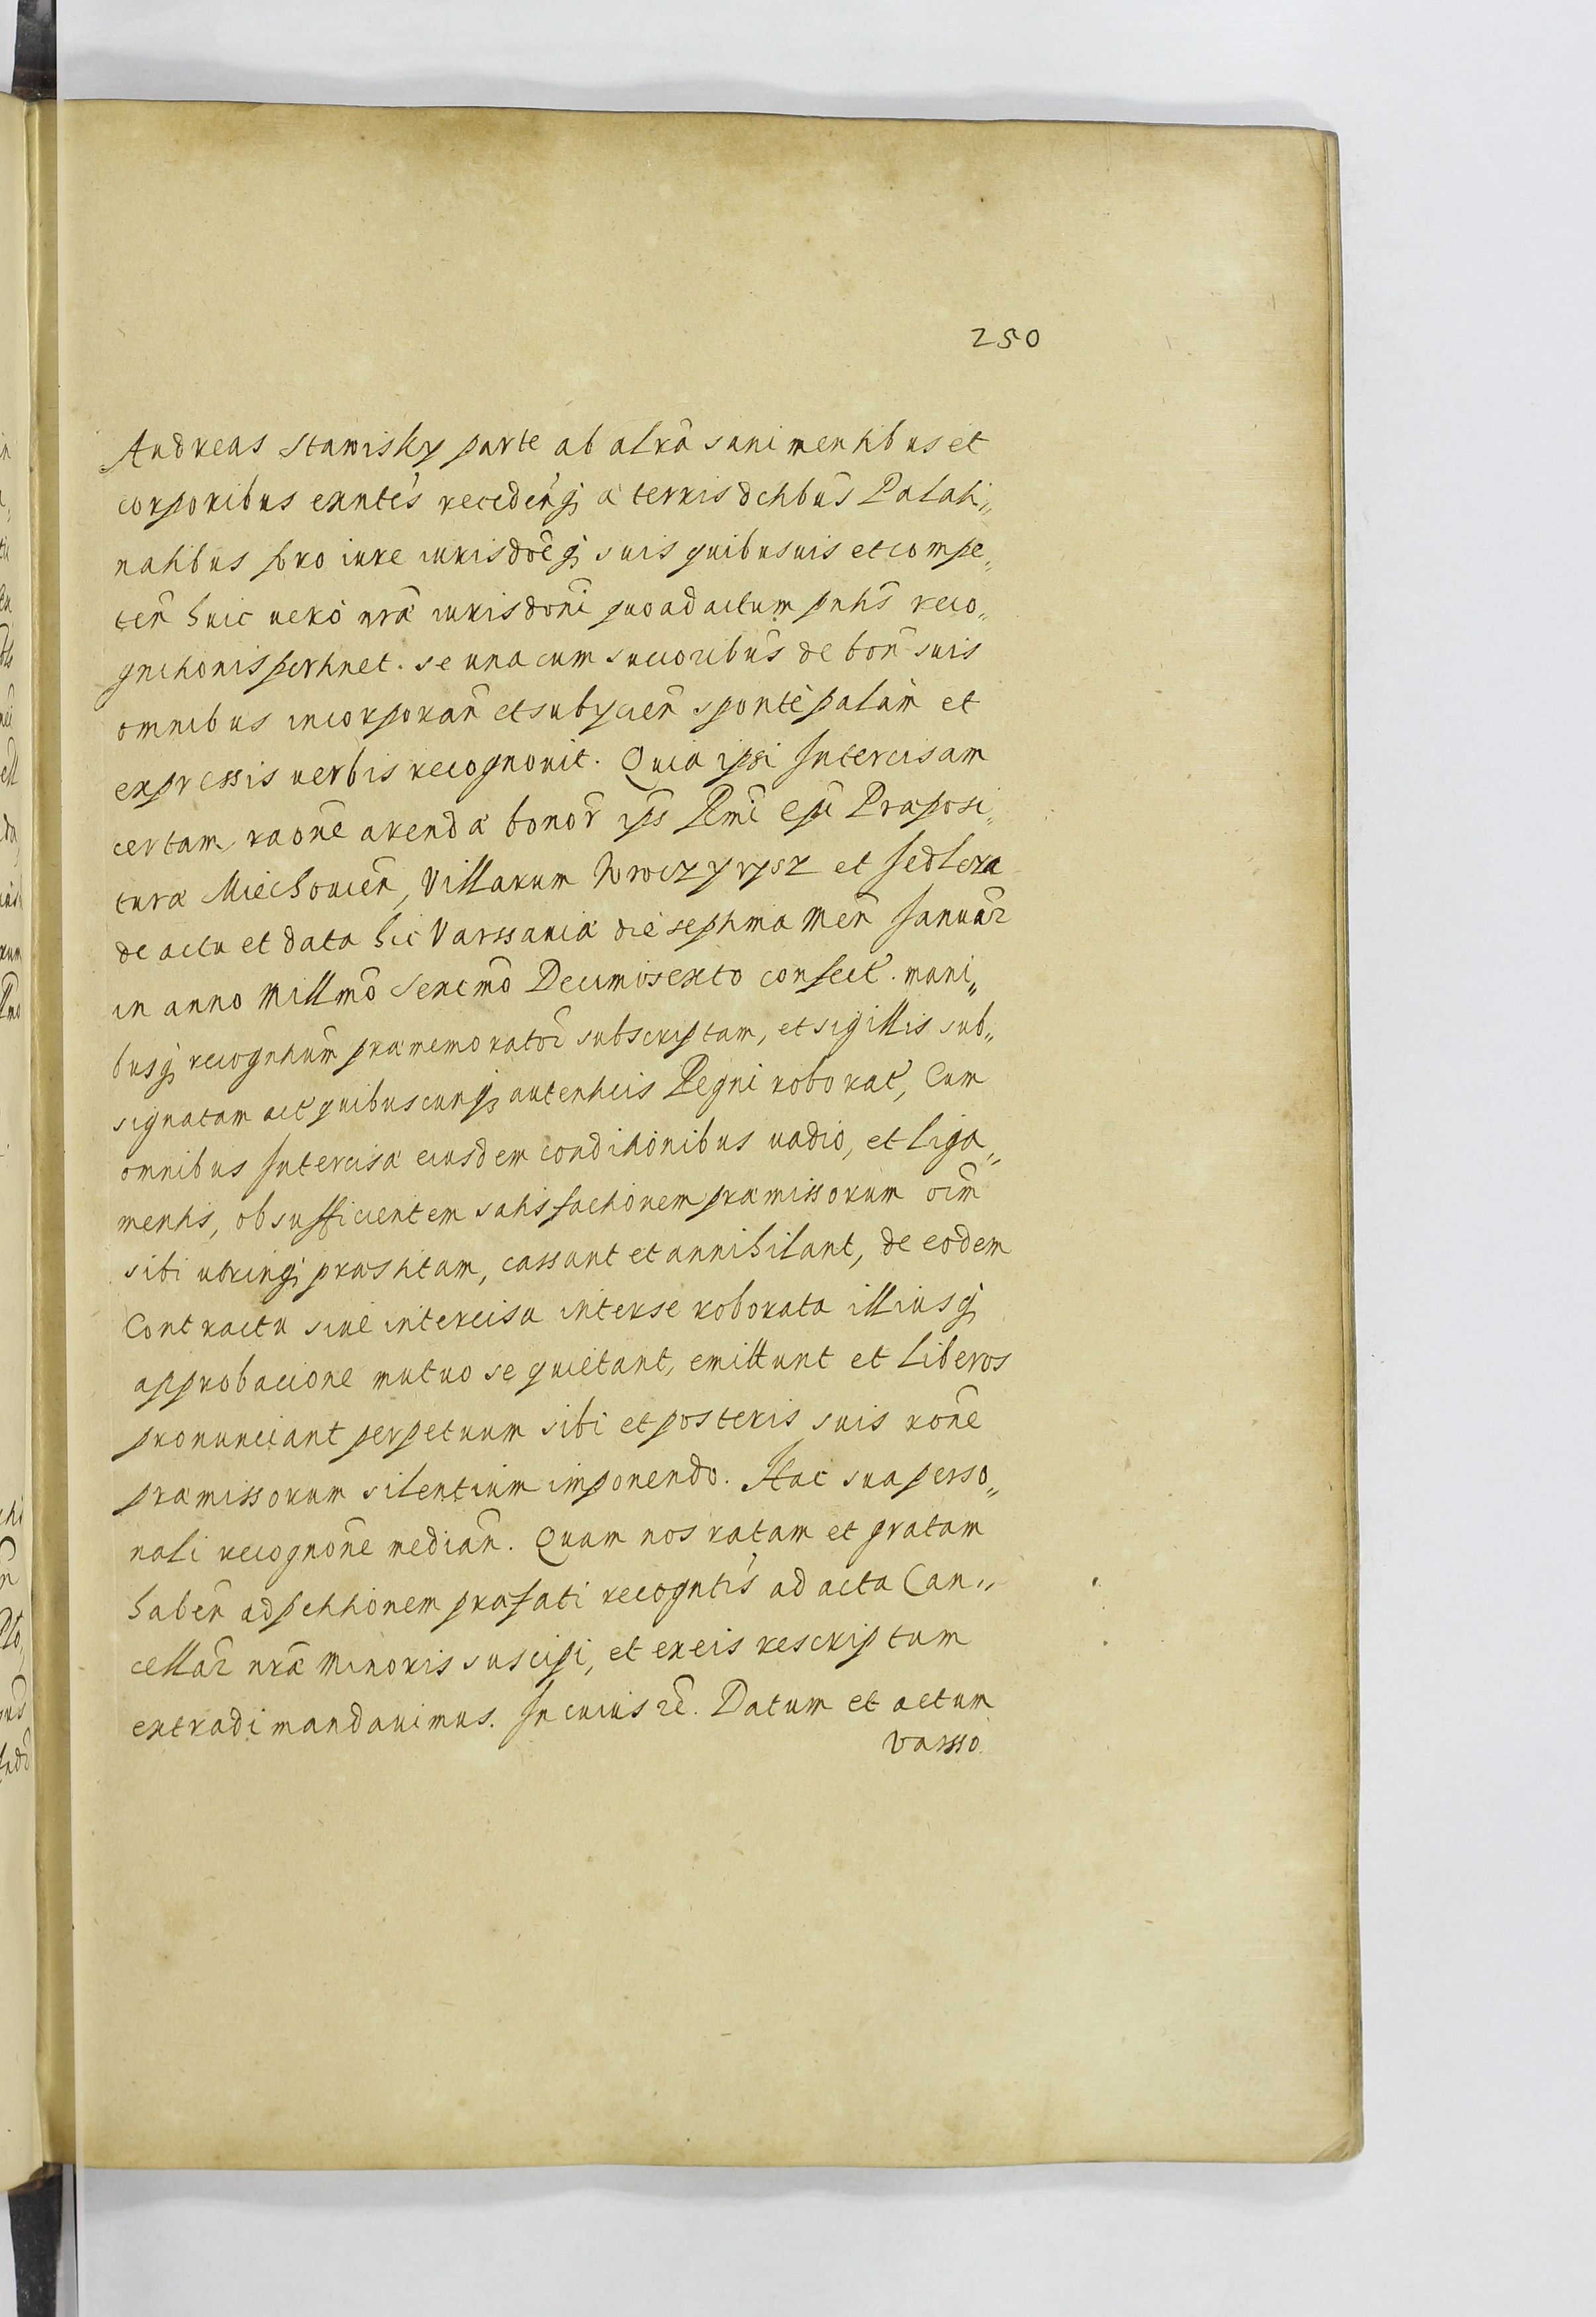 250
Andreas Stawisky parte ab alrã sani mentibus et
corporibus exntẽs recedeñq; à terris dctibus̃ Palati„
natibus pro iure iurisdõeq; suis quibusuis et compe„
teñ huic uerò nrã iurisdoni quoad actum pntis̃ reco„
gnitionis pertinet. se una cum succoribus̃ de boñ suis
omnibus incorporañ et subyacieñ spontè palàm et
expressis uerbis recognouit. Quia ipsi Intercisam
certam raõne arendæ bonor̃ ips̃ Rmi Epi Præposi„
turæ Miechouieñ, Villarum Wrocz y rysz et Sedlcza
de actu et data hic Varssauiæ die septima Meñ Januar̃
in anno Millmõ Sexcmõ Decimosexto confect̃. mani„
busq; recogntium̃ præmemorator̃ subscriptam, et sigillis sub„
signatam act̃ quibuscunq; autenticis Regni roborat̃, Cum
omnibus Intercisæ eiusdem conditionibus uadio, et Liga„
mentis, ob sufficientem satisfactionem præmissorum oim̃
sibi utrinq; præstitam, cassant et annihilant, de eodem
Contractu siue intercisa interse roborata illiusq;
approbacione mutuo se quietant, emittunt et Liberos
pronunciant perpetuum sibi et posteris suis rõne
præmissorum silentium imponendo. Hac sua perso„
nali recognõne mediañ. Quam nos ratam et gratam
habeñ ad petitionem præfati recogntis̃ ad acta Can„
cellar̃ nræ Minoris suscipi, et ex eis rescriptum
extradi mandauimus. In cuius rẽ. Datum et actum
Varsso